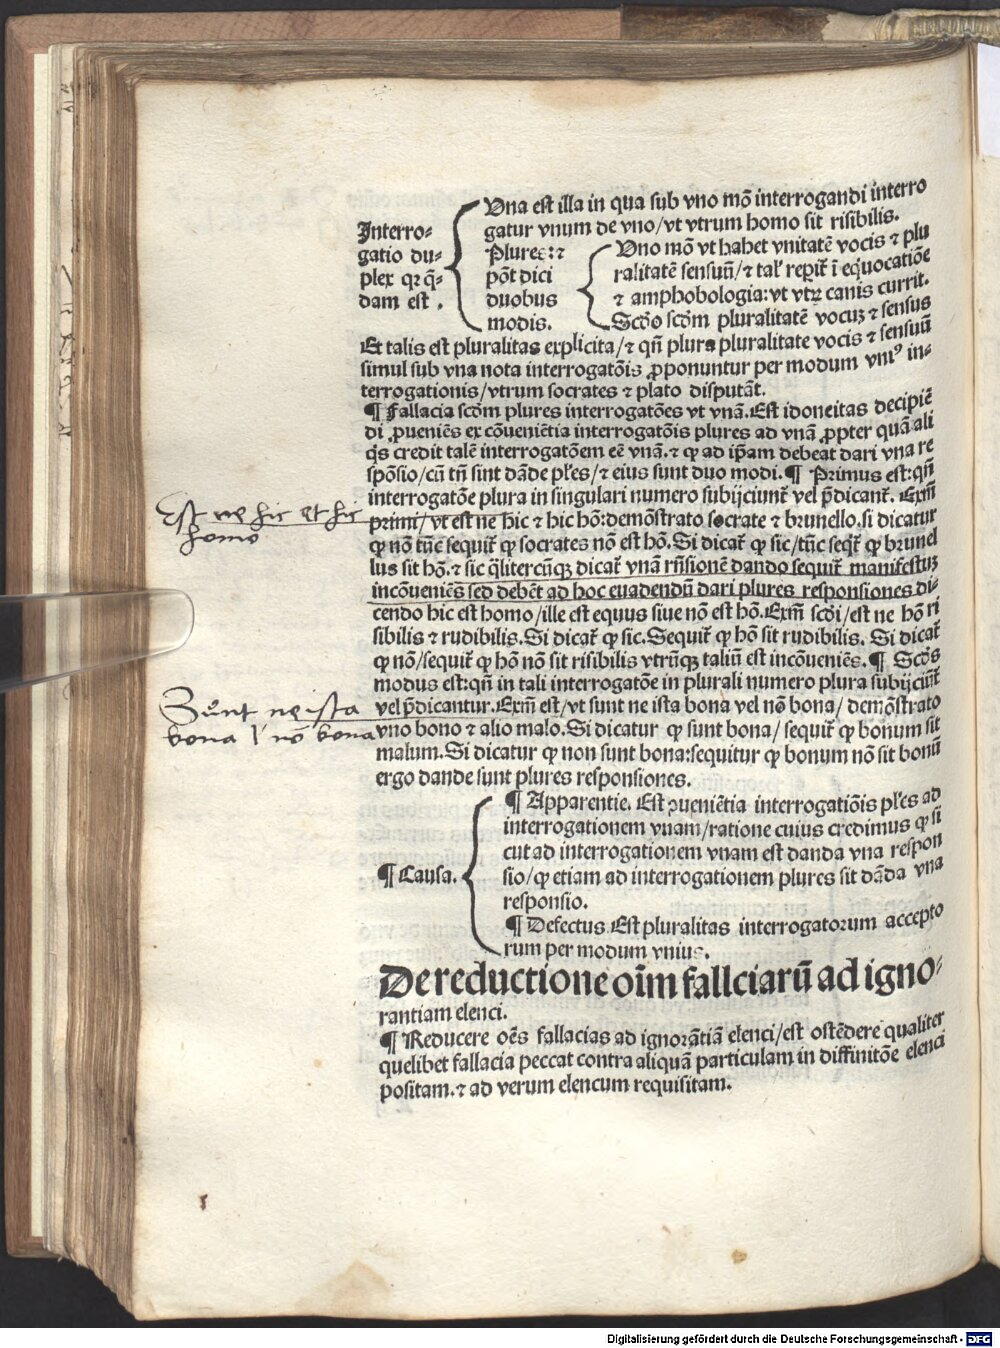 Interro⸗
gatio du⸗
plex qꝛ q̄⸗
dam est .
Vna est illa in qua sub vno mō interrogandi interro
gatur vnum de vno/vt vtrum homo sit risibilis.
Plures: ⁊
pōt dici
duobus
modis.
Vno mō vt habet vnitatē vocis ⁊ plu
ralitatē sensuū/⁊ tal' reꝑit̄ ī eq̄uocatiōe
⁊ amphobologia: vt vtꝝ canis currit.
Scḋo scḋm pluralitatē vocuꝫ ⁊ sensus
Et talis est pluralitas explicita/⁊ qn̄ plura pluralitate vocis ⁊ sensuū
simul sub vna nota interrogatōis ꝓponuntur per modum vniꝰ in⸗
terrogationis/vtrum socrates ⁊ plato disputāt.
¶ Fallacia scḋm plures interrogatōes vt vnā. Est idoneitas decipiē
di ꝓueniēs ex cōueniētia interrogatōis plures ad vnā ꝓpter quā ali
q̇s credit talē interrogatōem eē vnā. ⁊ ꝙ ad ip̄am debeat dari vna re
spōsio/cū tn̄ sint dāde pl'es/⁊ eius sunt duo modi. ¶ Primus est: qn̄
interrogatōe plura in singulari numero subijciunt̄ vel p̄dicant̄. Exm̄
primi/vt est ne hic ⁊ hic hō: demōstrato socrate ⁊ brunello. si dicatur
ꝙ nō tūc sequit̄ ꝙ socrates nō est hō. Si dicat̄ ꝙ sic/tūc seq̄t̄ ꝙ brunel
lus sit hō. ⁊ sic q̄litercūqꝫ dicat̄ vnā rn̄sionē dando sequit̄ manifestuꝫ
incōueniēs sed debēt ad hoc euadendū dari plures responsiones di⸗
cendo hic est homo/ille est equus siue nō est hō. Exm̄ scḋi/est ne hō ri
sibilis ⁊ rudibilis. Si dicat̄ ꝙ sic. Sequit̄ ꝙ hō sit rudibilis. Si dicat̄
ꝙ nō/sequit̄ ꝙ hō nō sit risibilis vtrūqꝫ taliū est incōueniēs. ¶ Scḋs
modus est: qn̄ in tali interrogatōe in plurali numero plura subijciūt̄
vel p̄dicantur. Exm̄ est/vt sunt ne ista bona vel nō bona/demōstrato
vno bono ⁊ alio malo. Si dicatur ꝙ sunt bona/sequit̄ ꝙ bonum sit
malum. Si dicatur ꝙ non sunt bona: sequitur ꝙ bonum nō sit bonū
ergo dande sunt plures responsiones.
Est ne hic et hic
homo
Sūnt ne ista
bona l' nō bona
¶ Causa.
¶ Apparentie. Est ꝯueniētia interrogatiōis pl'es ad
interrogationem vnam/ratione cuius credimus ꝙ si
cut ad interrogationem vnam est danda vna respon
sio/ꝙ etiam ad interrogationem plures sit dāda vna
responsio.
¶ Defectus. Est pluralitas interrogatorum accepto
rum per modum vnius.
De reductione oīm fallciarū ad igno⸗
rantiam elenci.
¶ Reducere oēs fallacias ad ignorātiā elenci/est ostēdere qualiter
quelibet fallacia peccat contra aliquā particulam in diffinitōe elenci
positam. ⁊ ad verum elencum requisitam.
Digitalisierung gefördert durch die Deutsche Forschungsgemeinschaft - DFG